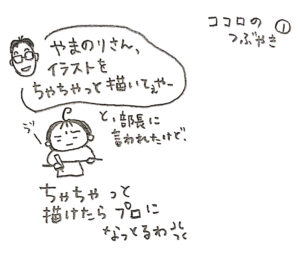 ココロの
つぶやき①
やまのりさん、
イラストを
ちゃちゃっと描いてぇやー
と、部長に
言われたけど、
ちゃちゃっと
描けたらプロに
なっとるわ